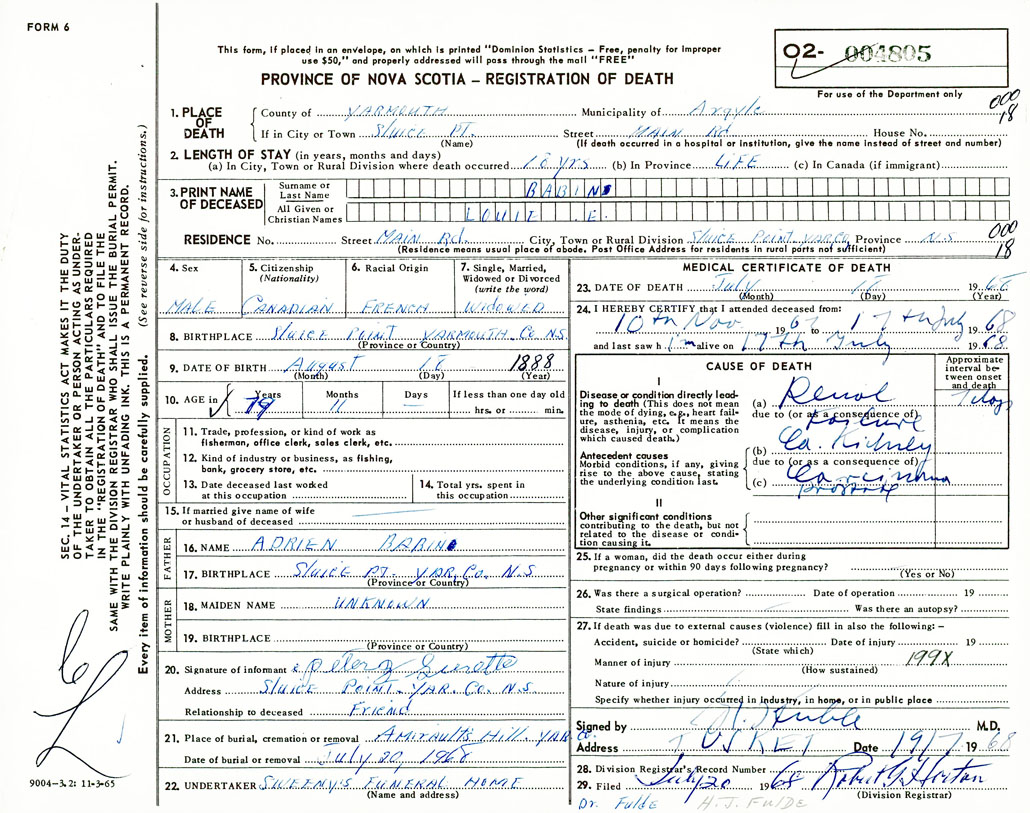 FORM 6
This form, if placed in an envelope, on which is printed "Dominion Statistics – Free, penalty for improper
use $50," and properly addressed will pass through the mail "FREE"
PROVINCE OF NOVA SCOTIA – REGISTRATION OF DEATH
02- 004805
For use of the Department only
000
18
1. PLACE OF DEATH
County of YARMOUTH Municipality of Argyle
If in City or Town Sluice PT. Street MAIN Rd House No.
(Name) (If death occurred in a hospital or institution, give the name instead of street and number)
2. LENGTH OF STAY (in years, months and days)
(a) In City, Town or Rural Division where death occurred 18 yrs (b) In Province LIFE (c) In Canada (if immigrant)
3. PRINT NAME OF DECEASED
Surname or Last Name BABIN
All Given or Christian Names LOUIE .E.
RESIDENCE No. Street MAIN Rd. City, Town or Rural Division Sluice Point. YAR.Co. Province N.S
(Residence means usual place of abode. Post Office Address for residents in rural parts not sufficient)
000
18
4. Sex
MALE
5. Citizenship (Nationality)
CANADIAN
6. Racial Origin
FRENCH
7. Single, Married, Widowed or Divorced (write the word)
WIDOWED
8. BIRTHPLACE Sluice Point YARMOUTH. Co. N.S.
(Province or Country)
9. DATE OF BIRTH August 18 1888
(Month) (Day) (Year)
10. AGE in
Years 79
Months 11
Days —
If less than one day old
hrs. or min.
OCCUPATION
11. Trade, profession, or kind of work as
fisherman, office clerk, sales clerk, etc.
12. Kind of industry or business, as fishing,
bank, grocery store, etc.
13. Date deceased last worked
at this occupation
14. Total yrs. spent in
this occupation
15. If married give name of wife
or husband of deceased
FATHER
16. NAME ADRIEN BABIN
17. BIRTHPLACE Sluice PT. YAR. Co. N.S
(Province or Country)
MOTHER
18. MAIDEN NAME UNKNOWN
19. BIRTHPLACE
(Province or Country)
20. Signature of informant
Address Sluice Point. YAR. Co. N.S.
Relationship to deceased Friend
21. Place of burial, cremation or removal Amiraults Hill. YAR Co.
Date of burial or removal July 20, 1968
22. UNDERTAKER SWEENY'S FUNERAL HOME
(Name and address)
MEDICAL CERTIFICATE OF DEATH
23. DATE OF DEATH July 18 1968
(Month) (Day) (Year)
24. I HEREBY CERTIFY that I attended deceased from:
10th Nov 1967 to 17th July 1968
and last saw him alive on 17th July 1968
CAUSE OF DEATH
Approximate interval between onset and death
I
Disease or condition directly leading to death (This does not mean
the mode of dying, e.g., heart failure, asthenia, etc. It means the
disease, injury, or complication
which caused death.)
(a) Renal
due to (or as a consequence of)
Failure
Antecedent causes
Morbid conditions, if any, giving
rise to the above cause, stating
the underlying condition last.
(b) Ca. Kidney
due to (or as a consequence of)
(c) Carcinoma
prostate
II
Other significant conditions
contributing to the death, but not
related to the disease or condition causing it.
25. If a woman, did the death occur either during
pregnancy or within 90 days following pregnancy?
(Yes or No)
26. Was there a surgical operation? Date of operation 19
State findings Was there an autopsy?
27. If death was due to external causes (violence) fill in also the following: –
Accident, suicide or homicide? Date of injury 19
(State which)
Manner of injury 199X
(How sustained)
Nature of injury
Specify whether injury occurred in industry, in home, or in public place
Signed by M.D.
Address TUSKET Date 19/7 1968
28. Division Registrar's Record Number
29. Filed July 20 1968 Robert G. Horton
(Division Registrar)
Dr. Fulde H. J. FULDE
SEC. 14 – VITAL STATISTICS ACT MAKES IT THE DUTY
OF THE UNDERTAKER OR PERSON ACTING AS UNDERTAKER TO OBTAIN ALL THE PARTICULARS REQUIRED
IN THE "REGISTRATION OF DEATH" AND TO FILE THE
SAME WITH THE DIVISION REGISTRAR WHO SHALL ISSUE THE BURIAL PERMIT.
WRITE PLAINLY WITH UNFADING INK. THIS IS A PERMANENT RECORD.
Every item of information should be carefully supplied. (See reverse side for instructions.)
9004-3.2: 11-3-65